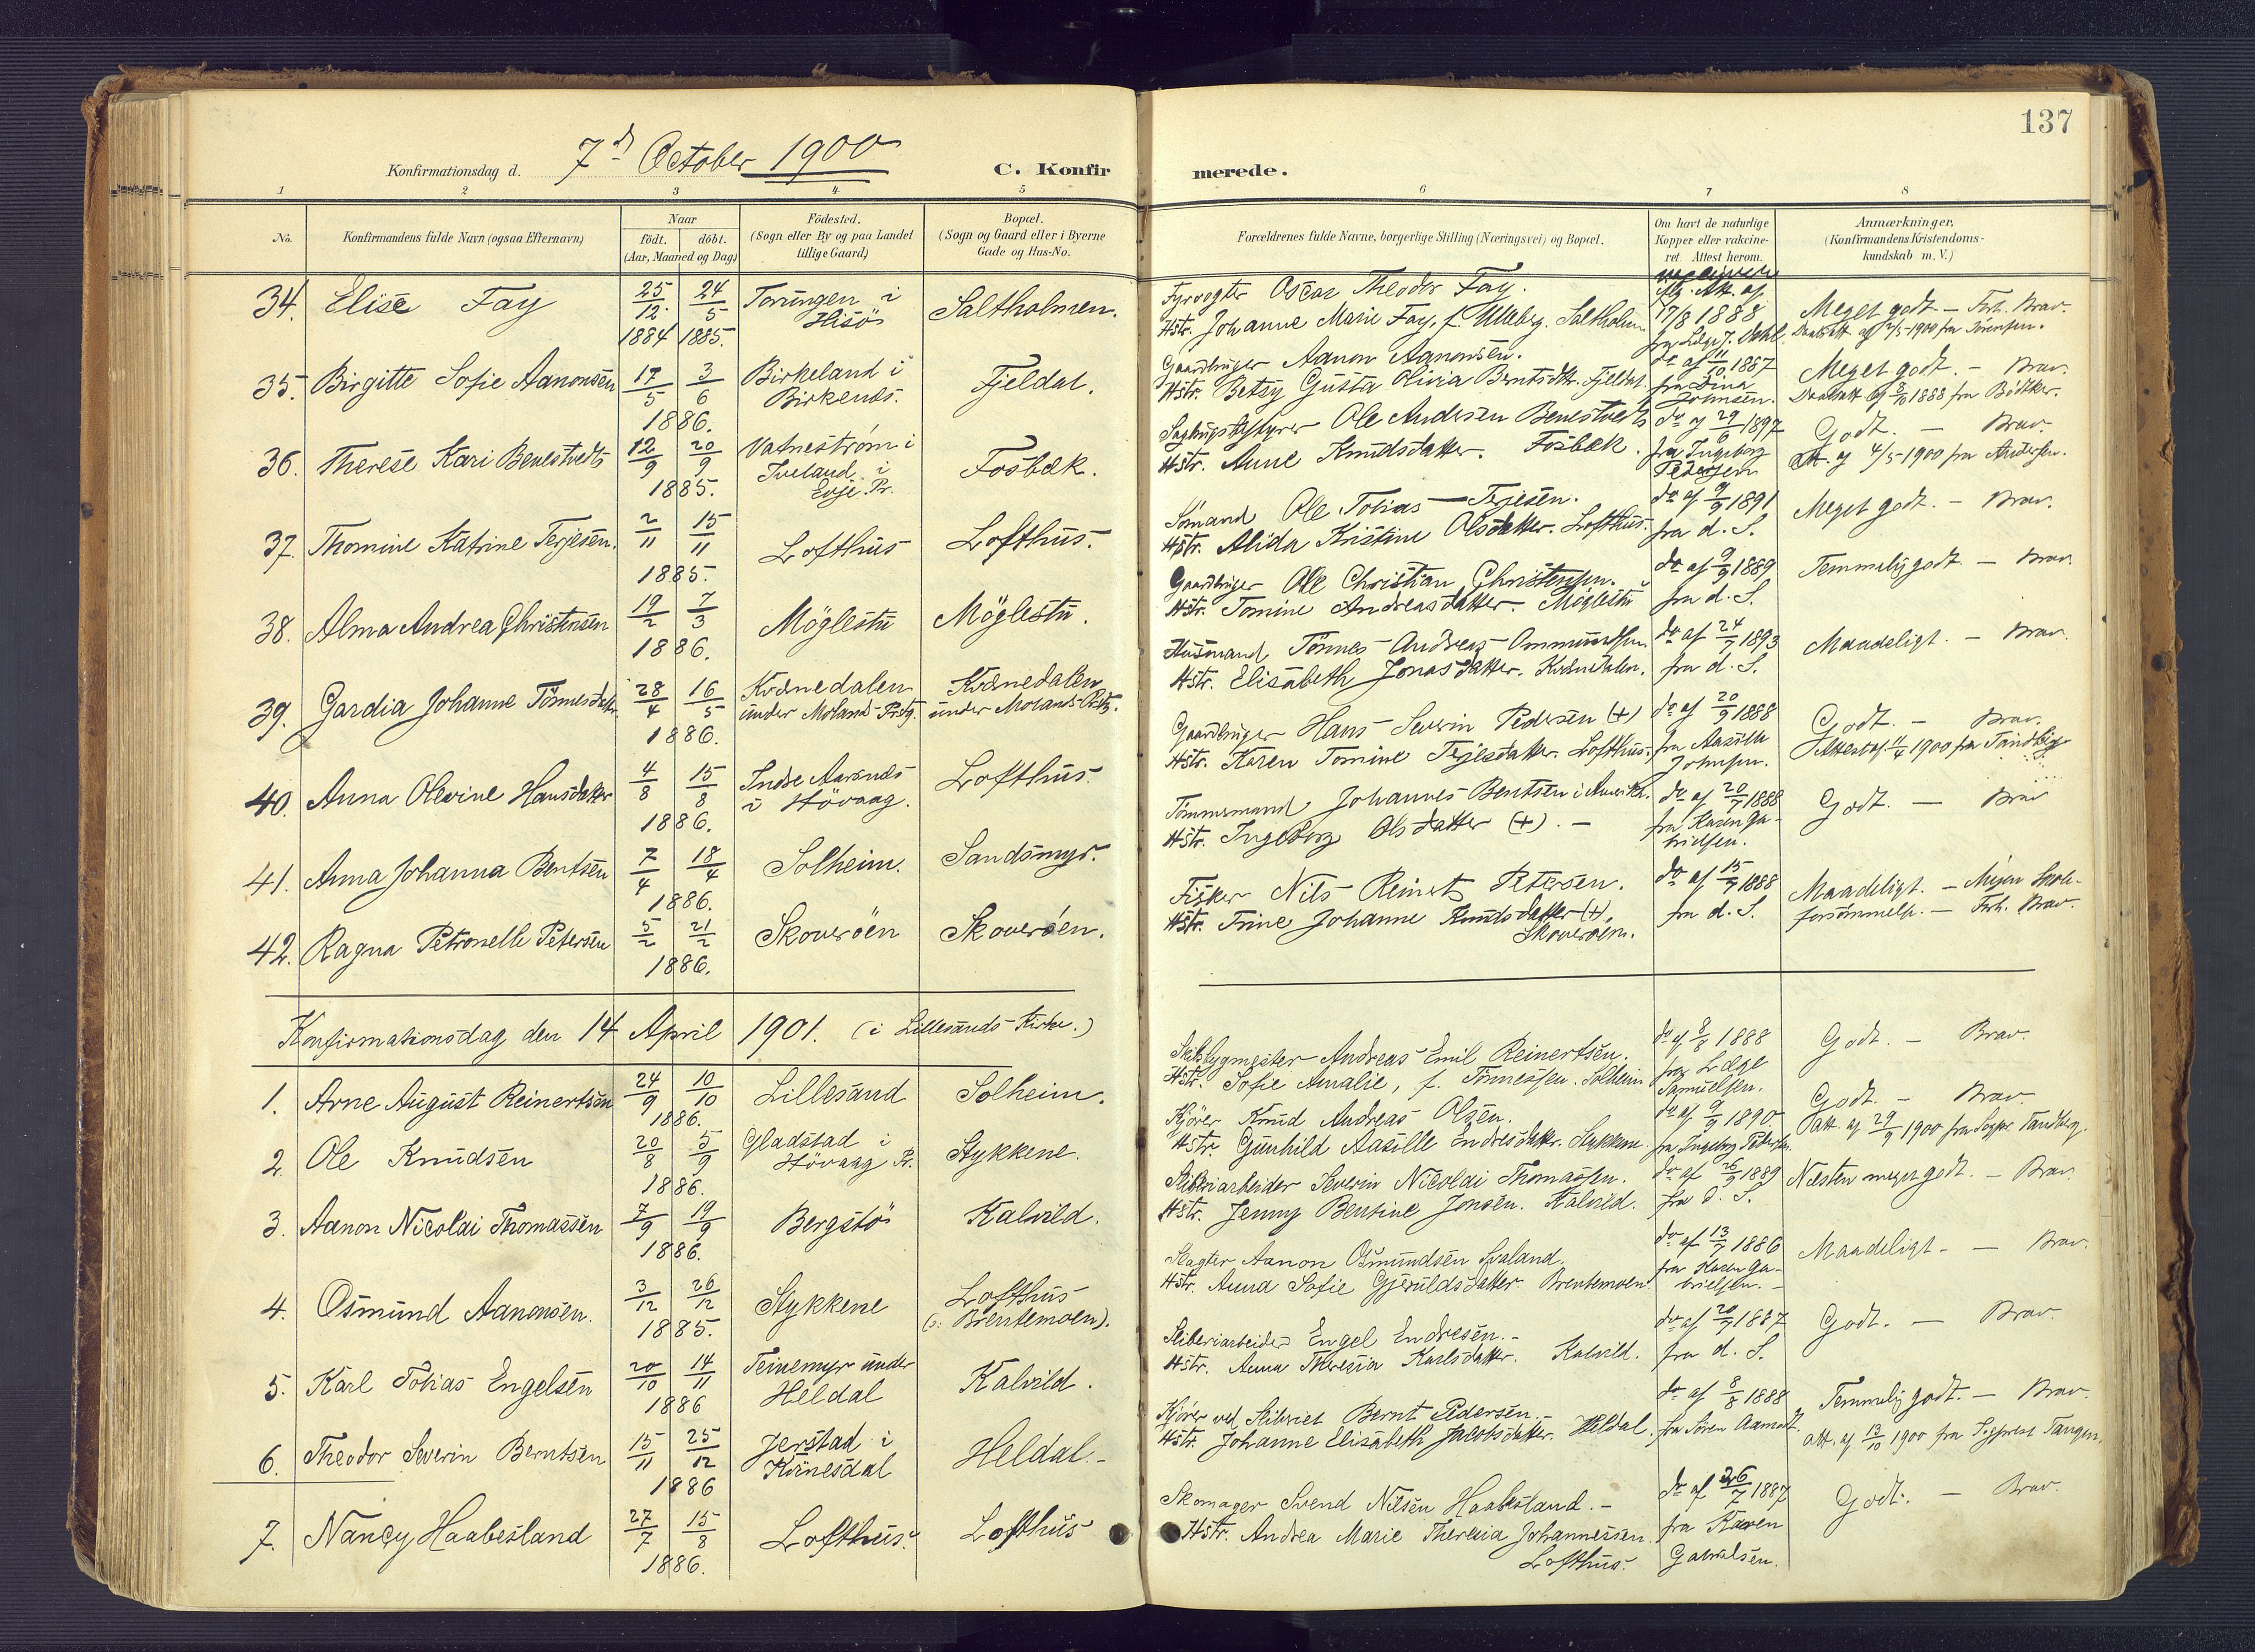 137
Konfirmationsdag d. 7d October 1900
C. Konfirmerede.
1 2 3 4 5 6 7 8
No.
Konfirmandens fulde Navn (ogsaa Efternavn)
Naar
födt. döbt.
(Aar, Maaned og Dag)
Födested.
(Sogn eller By og paa Landet
tillige Gaard)
Bopæl.
(Sogn og Gaard eller i Byerne
Gade og Hus-No.
Forældrenes fulde Navne, borgerlige Stilling (Næringsvei) og Bopæl.
Om havt de naturlige
Kopper eller vakcine-
ret. Attest herom.
Anmærkninger,
(Konfirmandens Kristendoms-
kundskab m. V.)
34. Elise Fay 25/12 1884 24/5 1885. Torungen i Hisö Saltholmen.
Fyrvogter Oscar Theodor Fay.
Hstr. Johanne Marie Fay, f. Ulleberg. Saltholm
Att. af 17/8 1888 fra Læge J. Dahl
Meget godt – Forh. Brav.
Daabsatt af 2/5 1900 fra Sörensen.
35. Birgitte Sofie Aanonsen 17/5 3/6 1886. Birkeland i Birkenæs. Fjeldal.
Gaardbruger Aanon Aanonsen.
Hstr. Betsy Gusta Olivia Berntsdtr. Fjeldal.
do af 11/10 1887 fra Lina Johnsen.
Meget godt. – Brav.
Daabsatt af 8/10 1888 fra Bödtker.
36. Therese Kari Benestvedt 12/9 20/9 1885. Vatneström i Iveland i Evje Pr. Fosbæk.
Sagbrugsbestyrer Ole Andersen Benestvedt
Hstr. Anne Knudsdatter. Fosbæk.
do af 29/6 1897 fra Ingeborg Pedersen
Godt. – Brav.
Att. af 4/5 1900 fra Andersen.
37. Thomine Katrine Terjesen. 2/11 15/11 1885. Lofthus Lofthus.
Sömand Ole Tobias Terjesen.
Hstr. Alida Kristine Olsdatter. Lofthus.
do af 9/9 1891 fra d. S.
Meget godt. – Brav.
38. Alma Andrea Christensen 19/2 7/3 1886. Möglestu Möglestu.
Gaardbruger Ole Christian Christensen.
Hstr. Tomine Andreasdatter. Möglestu
do af 9/9 1889 fra d. S.
Temmelig godt. – Brav.
39. Gardia Johanne Tönnesdatter. 28/4 16/5 1886. Kvænedalen under Moland Prstg. Kvænedalen under Molands Prstg.
Husmand Tönnes Andreas Ommundsen.
Hstr. Elisabeth Jonasdatter. Kvænedalen.
do af 24/7 1893 fra d. S.
Maadeligt. – Brav.
40. Anna Olevine Hansdatter 4/8 15/8 1886. Indre Aarsnes i Hövaag. Lofthus
Gaardbruger Hans Severin Pedersen (+)
Hstr. Karen Tomine Terjesdatter. Lofthus.
do af 20/9 1888 fra Aasille Johnsen.
Godt. – Brav.
Attest af 11/4 1900 fra Tandberg
41. Anna Johanna Bentsen 7/4 18/4 1886. Solheim. Sandsmyr.
Tömmermand Johannes Bentsen i Amerika.
Hstr. Ingeborg Olsdatter (+). –
do af 20/7 1888 fra Karen Gabrielsen.
Godt. – Brav
42. Ragna Petronelle Petersen 5/2 21/2 1886. Skoveröen Skoveröen.
Fisker Nils Reinert Petersen.
Hstr. Trine Johanne Knudsdatter (+). Skoveröen.
do af 15/9 1888 fra d. S.
Maadeligt. – Megen Skole-
forsömmelse. – Forh. Brav.
Konfirmationsdag den 14 April 1901. (i Lillesands Kirke.)
1. Arne August Reinertsen 24/9 10/10 1886. Lillesand Solheim.
Skibsbygmester Andreas Emil Reinertsen.
Hstr. Sofie Amalie, f. Tönnessen. Solheim
do af 8/8 1888 fra Læge Samuelsen.
Godt – Brav.
2. Ole Knudsen 20/8 5/9 1886. Gladstad i Hövaag Pr. Stykkene.
Kjörer Knud Andreas Olsen.
Hstr. Gunhild Aasille Endresdatter. Stykkene
do af 9/9 1890. fra Ingeborg Pedersen.
Godt. – Brav.
Datt. af 29/9 1900 fra Sogpr. Tandberg.
3. Aanon Nicolai Thomassen 7/9 19/9 1886. Bergstö Kalvild.
Sliberiarbeider Severin Nicolai Thomassen.
Hstr. Jenny Bentine Jonsen. Kalvild.
do af 26/9 1889 fra d. S.
Næsten meget godt. – Brav.
4. Osmund Aanonsen. 3/12 26/12 1885. Stykkene Lofthus (o: Brentemoen).
Slagter Aanon Osmundsen Svaland.
Hstr. Anna Sofie Gjeruldsdatter Brentemoen.
do af 13/7 1886 fra Karen Gabrielsen. –
Maadeligt. – Brav.
5. Karl Tobias Engelsen 20/10 14/11 1886 Teinemyr under Heldal Kalvild.
Sliberiarbeider Engel Endresen. –
Hstr. Anna Theresia Karlsdatter. Kalvild.
do af 20/7 1887 fra d. S.
Godt. – Brav.
6. Theodor Severin Berntsen 15/11 25/12 1886 Jerstad i Kvinesdal Heldal. –
Kjörer ved Sliberiet Bernt Pedersen. –
Hstr. Johanne Elisabeth Jacobsdatter. Heldal.
do af 8/8 1888 fra Sören Aamodt.
Temmelig godt. – Brav.
Att. af 13/10 1900 fra Sogprest Tangen.
7. Nancy Haabesland 27/7 15/8 1886. Lofthus. Lofthus
Skomager Svend Nilsen Haabesland. –
Hstr. Andrea Marie Theresia Johannessen. Lofthus.
do af 26/7 1887 fra Karen Gabrielsen.
Godt. – Brav.